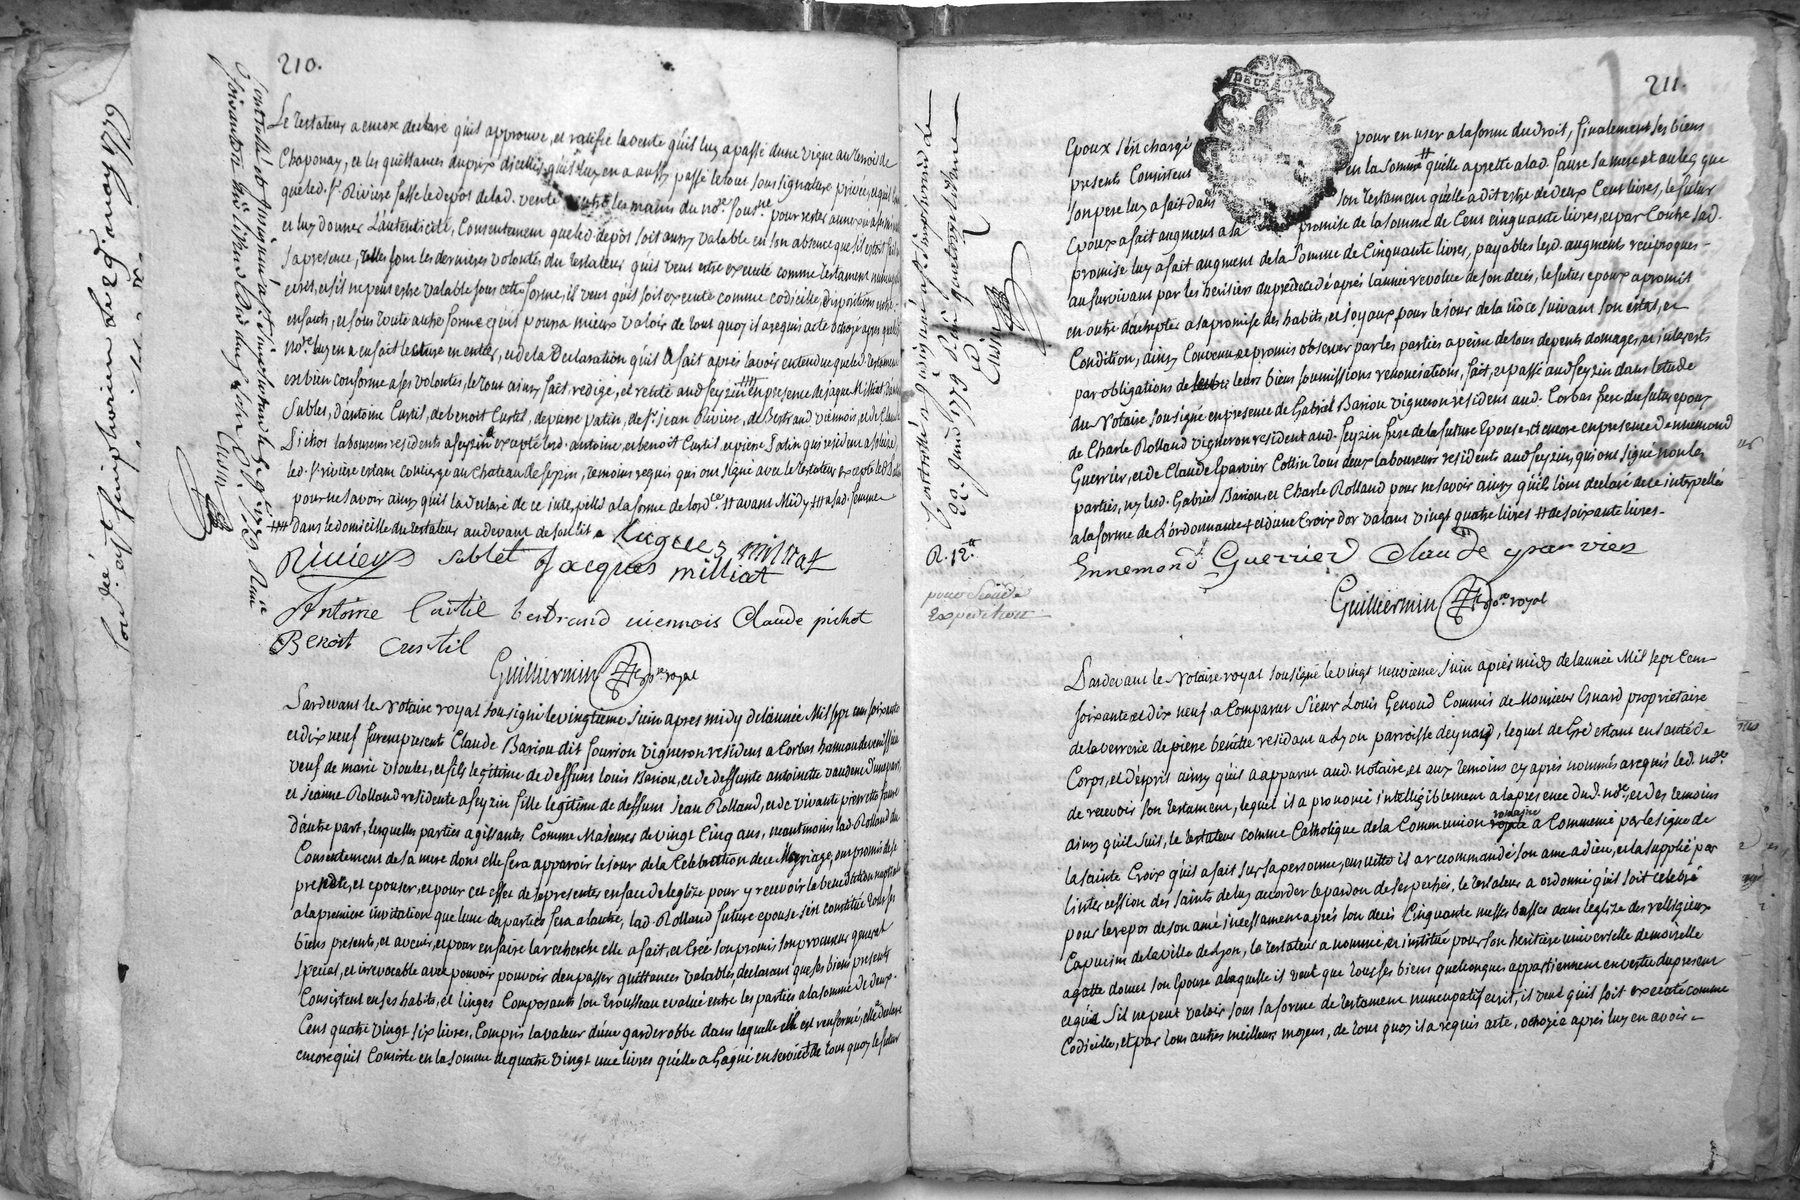 210.
Le testateur a encore declaré qu'il approuve, et ratifie la vente qu'il luy a passé d'une vigne au terroir de
Chaponay, et les quittances du prix d'icelle, qu'il luy en a aussy passé le tout sous signature privée, et qu'il
que led. Sr. Riviere fasse le depos de lad. vente entre les mains du nore. sousné. pour rester annexé
et luy donner L'autenticité, Consentement que led. depos soit aussy valable en son absence que s'il estoit fait en
sa presence, telles sont les dernieres volontés du testateur qu'il veut estre executé comme testament nuncupatif
ecrit, et s'il ne peut estre valable sous cette forme, il veut qu'il soit executé comme codicille, disposition entre
enfants, et sous toute autre forme qu'il pourra mieux valoir de tout quoy il a requis acte octroyé apres que led.
nore. luy en a eu fait lecture en entier, et de la Declaration qu'il a fait après l'avoir entendu que led. testament
est bien conforme a ses volontés, le tout ainsy fait, redigé, et recité aud. feyzin #### en presence de jaque Milliat
Sablet, d'antoine Curtil, de benoit Curtil, de pierre patin, de Sr. jean Riviere, de Bertrand viennois, et de Claude
Pichot laboureurs residents a feyzin excepté led. antoine, et benoit Curtil, et pierre Patin qui resident a
led. Sr. riviere estant concierge au chateau de feyzin, temoins requis qui ont signé avec le testateur excepté led. Patin
pour ne savoir ainsy qu'il l'a declaré de ce interpellé a la forme de l'ordce. # avant Midy ## a sad. femme
#### dans le domicille du testateur au devant de son lit. Hugues milliat
Riviere Sablet Jacques milliat
Antoine Curtil bertrand viennois Claude pichot
Benoit Curtil
Guilliermin nore. royal
Pardevant le Notaire royal sousigné le vingtieme juin apres midy de l'année Mil sept cent soixante
et dix neuf furent presents Claude Bariou dit fourrion vigneron resident a Corbas hameau de venissieu
veuf de marie violet, et fils legitime de deffunt louis Bariou, et de deffunte antoinette vaudent d'une part,
et jeanne Rolland residente a feyzin fille legitime de deffunt jean Rolland, et de vivante pierrette faure
d'autre part, lesquelles parties agissantes Comme Majeures de vingt Cinq ans, neantmoins lad. Rolland du
Consentement de sa mere dont elle fera apparoir le jour de la Celebration de ce Mariage, ont promis de se
prendre, et epouser, et pour cet effet de se presenter en face de l'eglize pour y recevoir la benediction nuptiale
a la premiere invitation que l'une des parties fera a l'autre, lad. Rolland future epouse s'est constitué tous ses
biens presents, et avenir, et pour en faire la recherche elle a fait, et Créé son promis son procureur general
special, et irrevocable avec pouvoir pouvoir d'en passer quittances valables, declarant que ses biens presents
Consistent en ses habits, et linges Composants son trousseau evalué entre les parties a la somme de deux-
Cens quatre vingt six livres, Compris la valeur d'une garderobbe dans laquelle elle est renfermé, elle declare
encore qu'il Consiste en la somme de quatre vingt une livres qu'elle a Gagné en service de tout quoy le futur
211.
DEUX SOLS
Epoux s'est chargé pour en user a la forme du droit, finalement ses biens
presents Consistent en la somme ## qu'elle a pretté a lad. faure sa mere et au leg que
son pere luy a fait dans son testament qu'elle a dit estre de deux Cent livres, le futur
Epoux a fait augment a la promise de la somme de Cent cinquante livres, et par Contre lad.
promise luy a fait augment de la somme de Cinquante livres, payables lesd. augments reciproques-
au survivant par les heritiers du predecedé après l'année revolue de son deces, le futur epoux a promis
en outre d'achepter a sa promise des habits, et joyaux pour le jour de la nôce suivant son état, et
Condition, ainsy Convenu et promis observer par les parties a peine de tous depents domages, et interests
par obligations de leurs biens soumissions renonciations, fait, et passé aud. feyzin dans letude
du Notaire sousigné en presence de Gabriel Bariou vigneron resident aud. Corbas frere du futur epoux
de Charle Rolland vigneron resident aud. feyzin frere de la future Epouse, et encore en presence d'ennemond
Guerrier, et de Claude Eparvier Cottin tous deux laboureurs residents aud. feyzin, qui ont signé non les
parties, ny lesd. Gabriel Bariou, et Charle Rolland pour ne savoir ainsy qu'ils l'ont declaré de ce interpellés
a la forme de L'ordonnance + et d'une Croix d'or valant vingt quatre livres ## de soixante livres-
Ennemond Guerrier Claude eparvier
Guilliermin nore. royal
R. 12.tt
pour Seconde
Expedition
Pardevant le Notaire royal sousigné le vingt neuvieme juin après midy de l'année Mil sept Cent
soixante et dix neuf a Comparut Sieur Louis Genoud Commis de Monsieur Esnard proprietaire
de la verrerie de pierre benitte resident a Lyon parroisse d'eynay, lequel de Gré estant en santé de
Corps, et d'esprit ainsy qu'il a apparut aud. notaire, et aux temoins cy après nommés a requis led. nore.
de recevoir son testament, lequel il a prononcé intelligiblement a la presence dud. nore., et des temoins
ainsy qu'il suit, le testateur comme Catholique de la Communion romaine a Commencé par le signe de
la sainte Croix qu'il a fait sur sa personne, ensuitte il a recommandé son ame a dieu, et l'a supplié par
l'intercession des saints de luy accorder le pardon de ses pechés, le testateur a ordonné qu'il soit celebré
pour le repos de son ame incessamment après son deces Cinquante messes basses dans l'eglize des relligieux
Capucins de la ville de Lyon, le testateur a nommé, et institué pour son heritiere universelle demoiselle
agatte son Epouse a laquelle il veut que tous ses biens quelconques appartiennent en vertu du present
et que s'il ne peut valoir sous la forme de testament nuncupatif ecrit, il veut qu'il soit executé comme
Codicille, et par tous autres meilleurs moyens, de tout quoy il a requis acte, octroyé après luy en avoir-